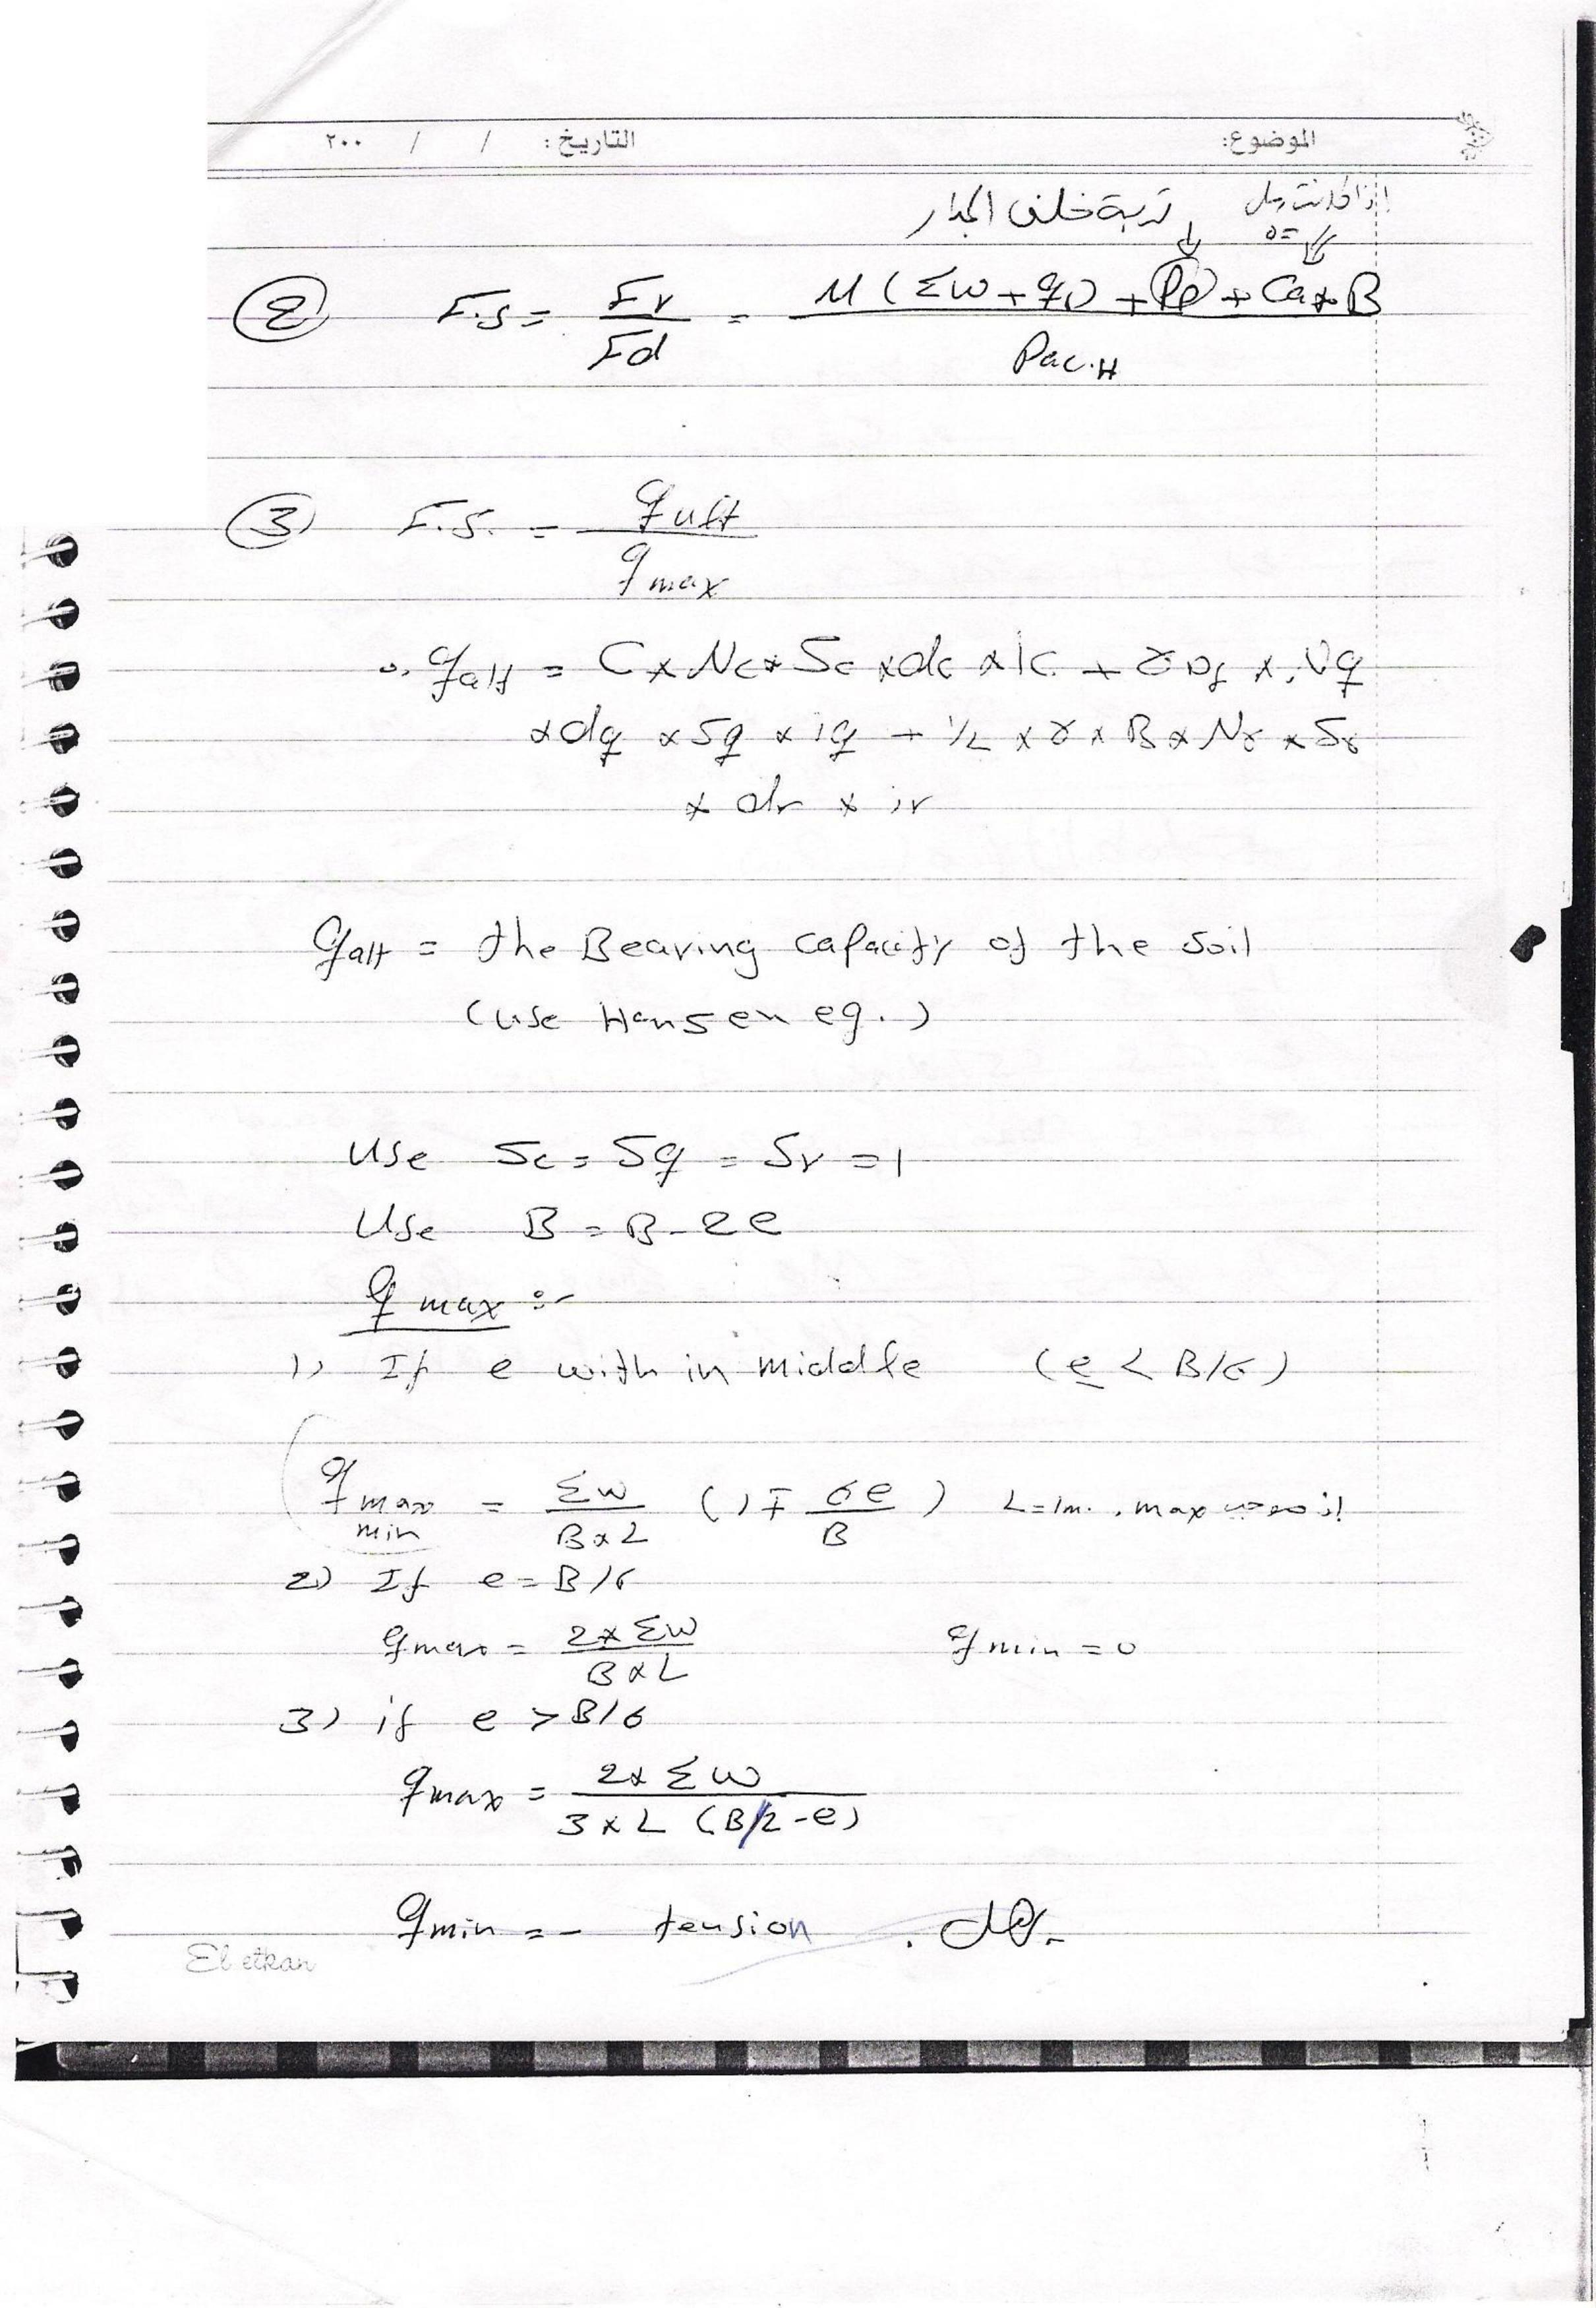 الموضوع: التاريخ : / / ٢٠٠
إذا كانت رمل
=0
تربة خلف الجدار
② F.S = Fr / Fd = M (ΣW + q) + Pp + Ca * B / Pac.H
③ F.S. = qult / qmax
∴ qult = C x Nc * Sc x dc x ic + γ Df x Nq
x dq x Sq x iq + 1/2 x γ x B x Nγ x Sγ
x dr x ir
qult = the Bearing capacity of the soil
(use Hansen eq.)
Use Sc = Sq = Sγ = 1
Use B = B - 2e
q max :-
1) If e with in middle (e < B/6)
q max min = ΣW / B x L (1 ∓ 6e / B) L=1m. , max
2) If e = B/6
qmax = 2 x ΣW / B x L q min = 0
3) if e > B/6
qmax = 2 x ΣW / 3 x L (B/2 - e)
qmin = - tension
El etkan